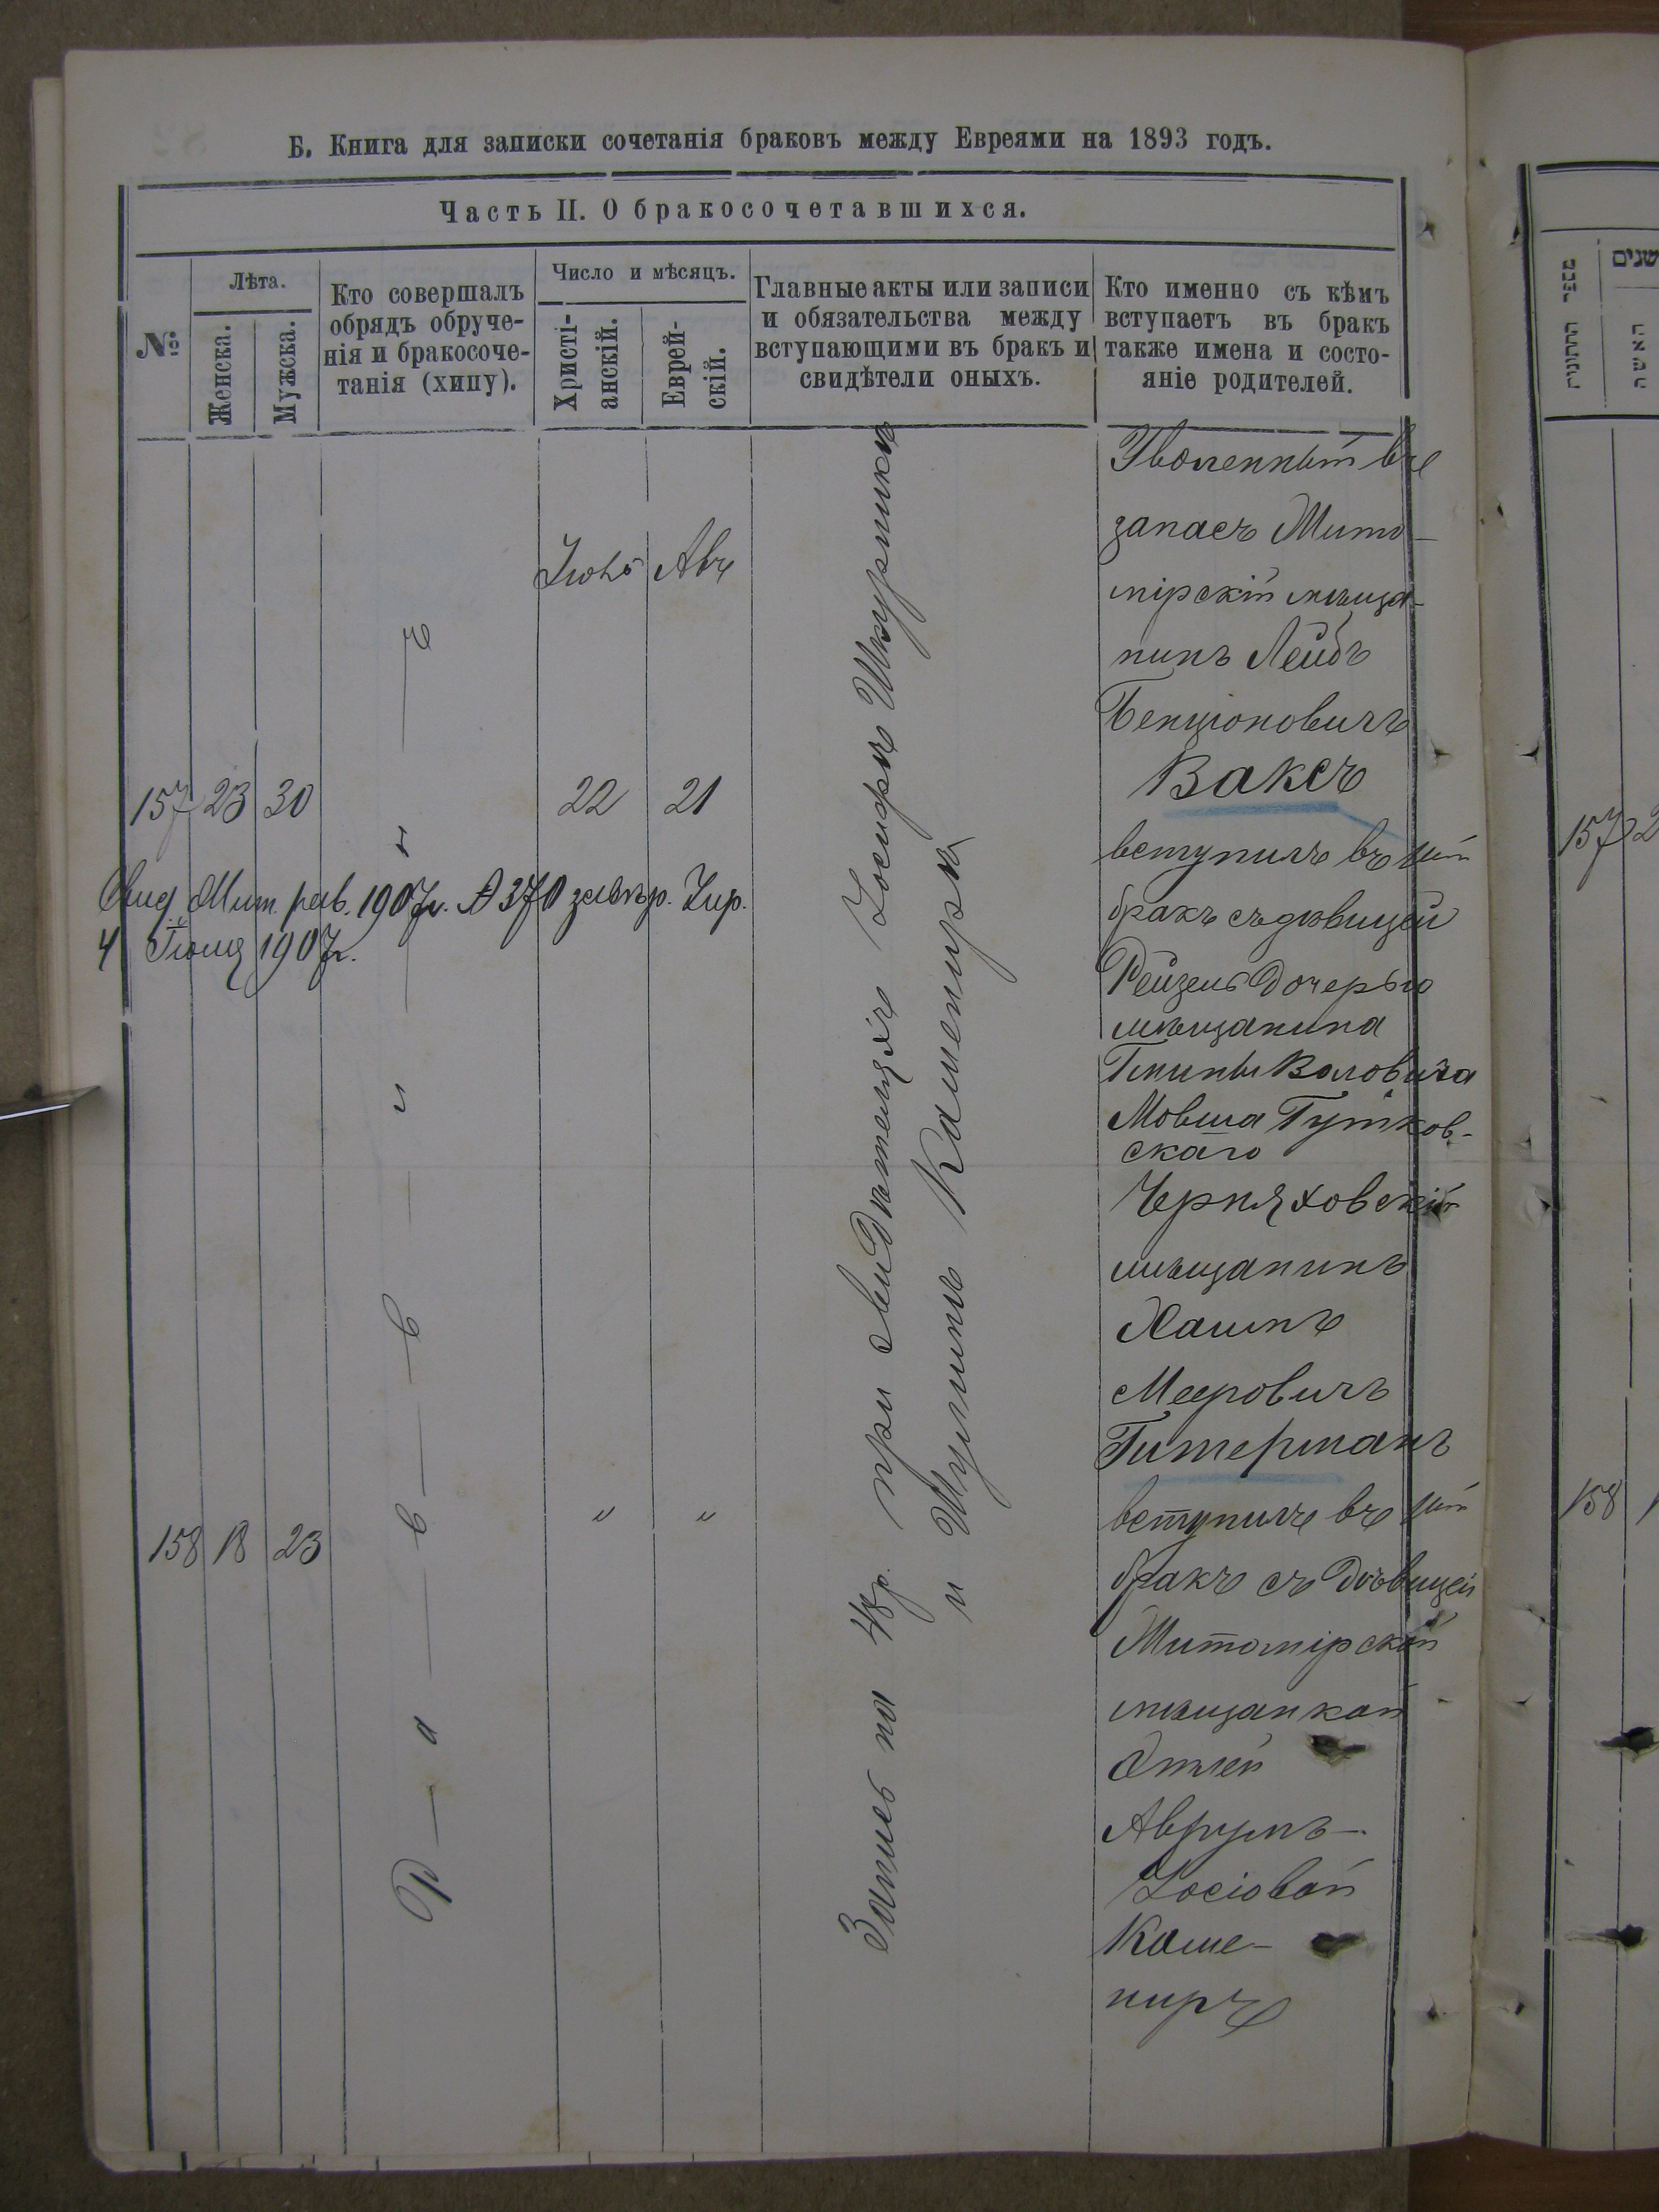 Б. Книга для записки сочетанія браковъ между Евреями на 1893 годъ.
Часть II. О бракосочетавшихся.
№
Лѣта.
Женска.
Мужска.
Кто совершалъ
обрядъ обруче-
нія и бракосоче-
танія (хипу).
Число и мѣсяцъ.
Христі-
анскій.
Еврей-
скій.
Главные акты или записи
и обязательства между
вступающими въ бракъ и
свидѣтели оныхъ.
Кто именно съ кѣмъ
вступаетъ въ бракъ
также имена и состо-
яніе родителей.
157 23 30
Р—а—в—в—и—н—ъ
Іюнь Авъ
22 21
Запись на 48 р. при свидѣтеляхъ Іосифѣ Шкурникѣ
и Шулимѣ Каменирѣ
Уволенный въ
запасъ Жито-
мірскій мѣща-
нинъ Лейбъ
Бенціоновичъ
Ваксъ
вступилъ въ 1й
бракъ съ дѣвицей
Рейзель дочерью
мѣщанина
Гмины Воловича
Мовша Гутков-
скаго
Свид. Жит. рав. 1907г. № 370 завѣр.
4 Іюля 1907г.
158 18 23
" "
Черняховскій
мѣщанинъ
Хаимъ
Мееровичъ
Гитерманъ
вступилъ въ 1й
бракъ съ дѣвицей
Житомірской
мѣщанкой
Этлей
Аврумъ-
Іосіовой
Каме-
ниръ
מספר החתונות
שנים
האשה
157 2
158 1